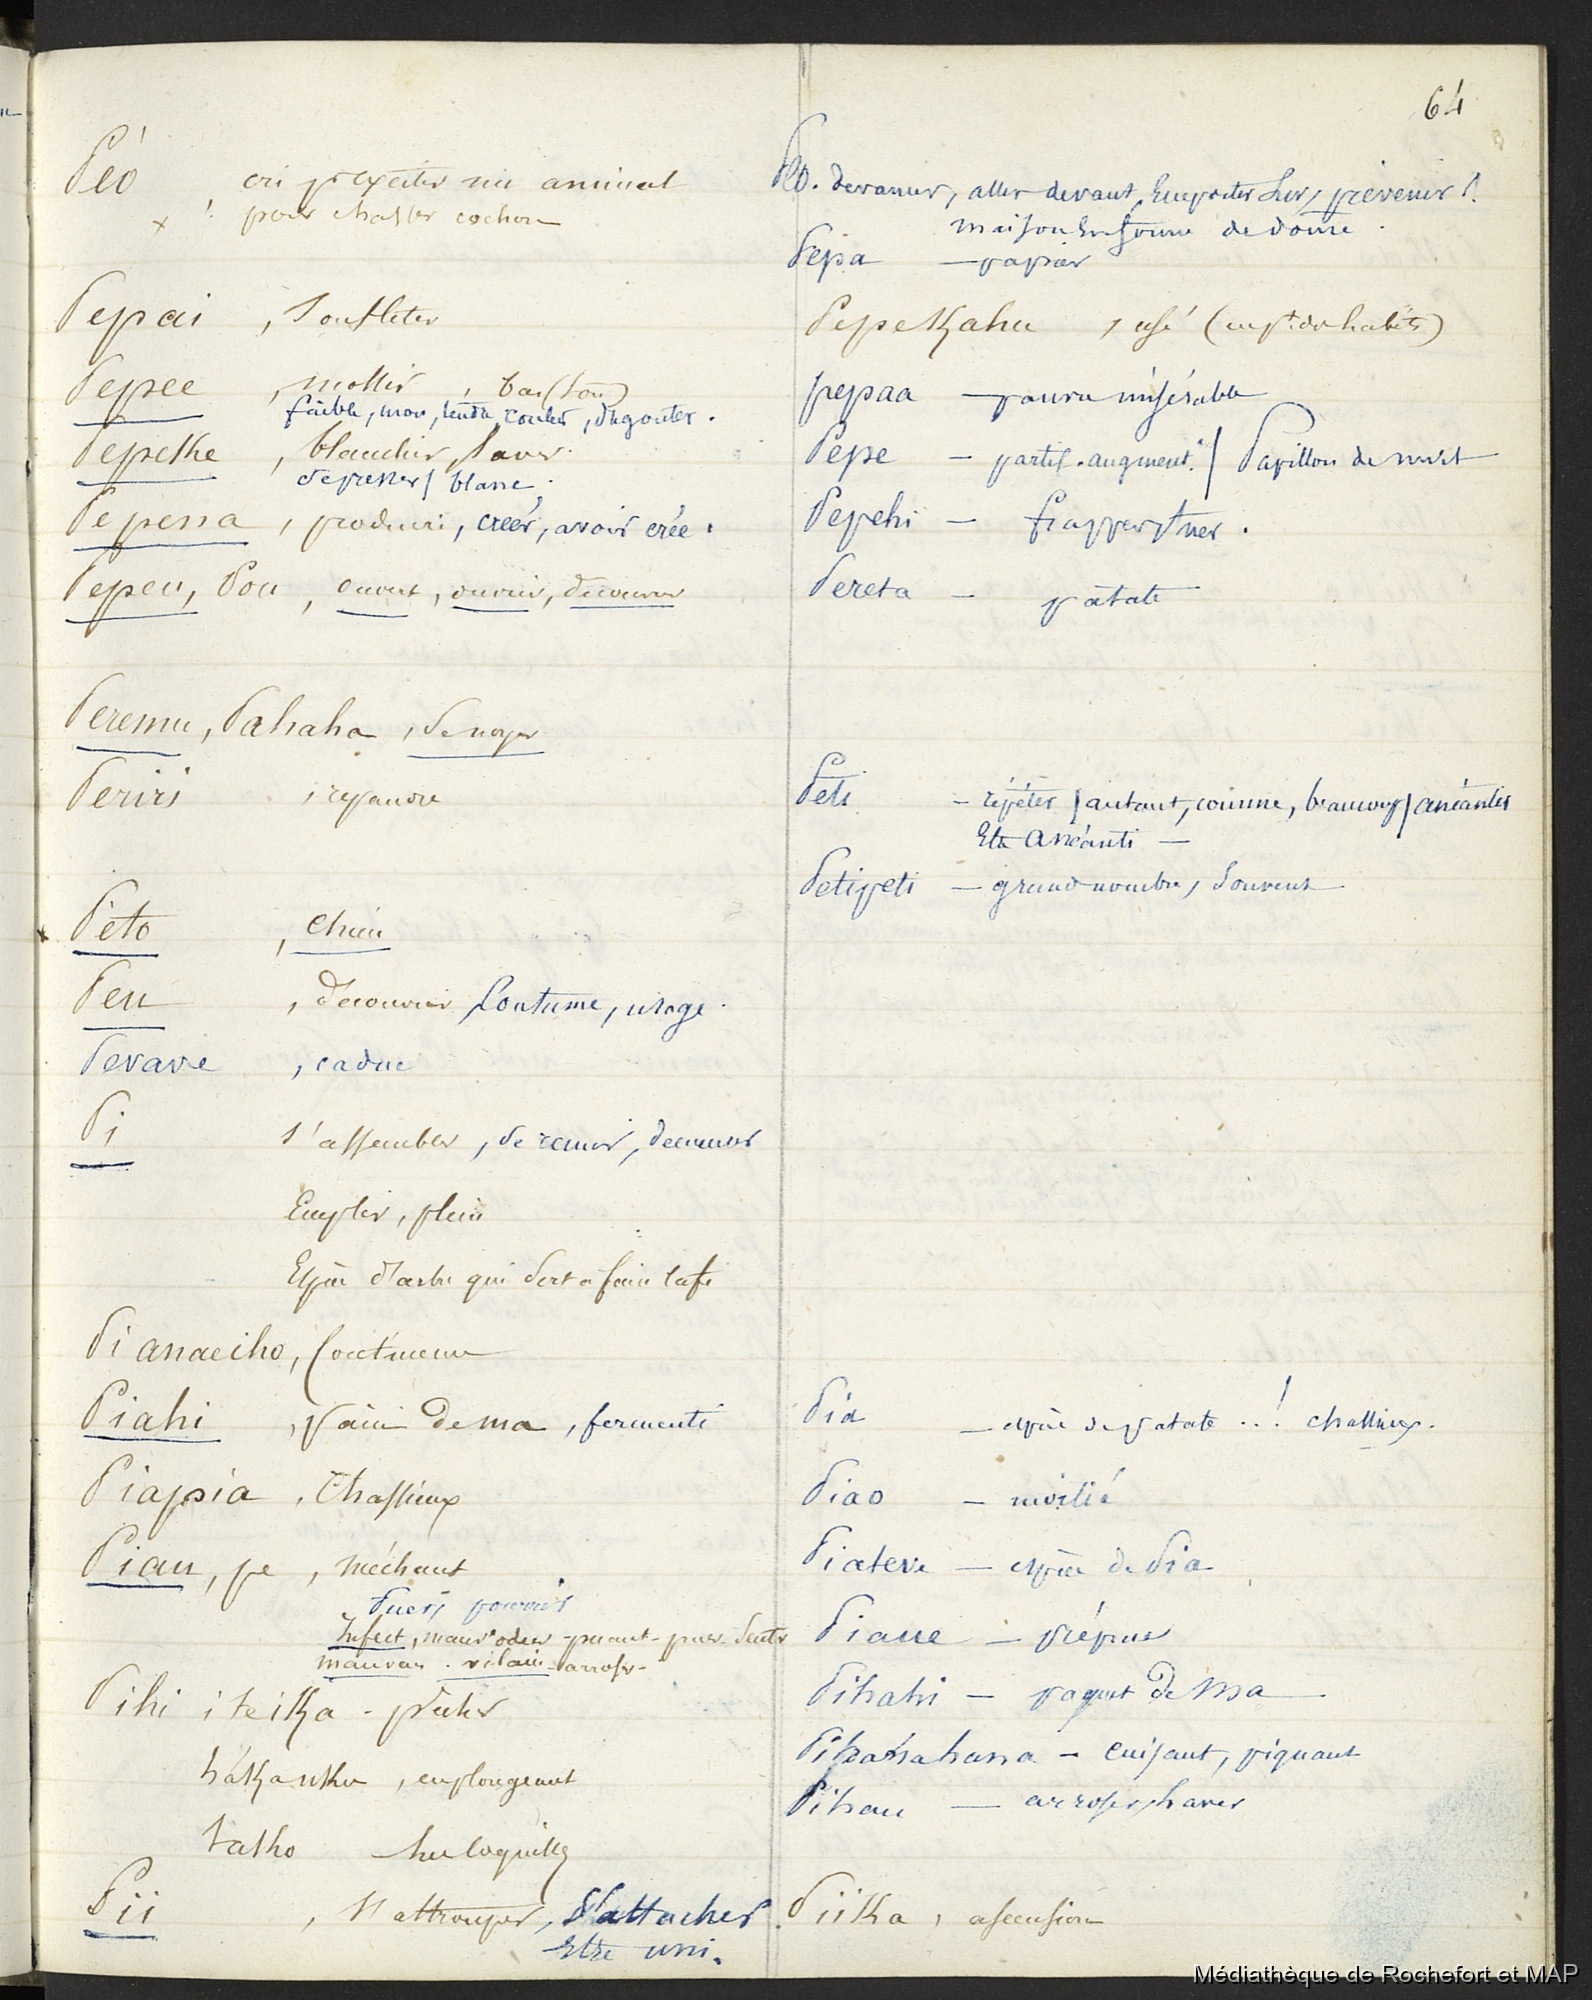 64
Péó cri pr exciter un animal
x ! pour chasser cochon
Pepai , souffleter
Pepee , mollir , bas (son)
faible, mou, couler, dégouter.
Pepehe , blanchir, laver.
blanc.
Pepena , produire, créer, avoir crée.
Pepeu, Pou , ouvert, ouvrir, découvrir
Peremu, Pahaha , se noyer
Periri , repandre
Péto , chien
Peu , découvrir Coutume, usage.
Pevave , caduc
Pi s'assembler, se réunir,
Emplir, plein
Espèce d'arbre qui sert à faire tafi
Pi anaeiho,
Piahi , pain de ma , fermenté
Piapia , Chassieux
Piau, pe , méchant
Puer, pourrir
Infect, mauvse odeur - puant - puer - sentir
mauvais . vilain - arroser -
Pihi i te iKa - pêcher
háKanhu , en plongeant
taSho
Pii , s'attrouper, s'attacher
etre uni.
Péo. devancer, aller devant, Emporter sur, prévenir ?.
maison en forme de dôme .
Pepa — papier
PepeKahu , usé (en pt. de habits)
pepaa — pauvre misérable
Pepe — partic. augment. / Papillon de nuit
Pepehi — frapper, tuer .
Pereta — patate
Peti — répéter / autant, comme, beaucoup / anéantir
Etre Anéanti —
Petipeti — grand nombre, souvent
Pia — espèce de patate ..! chassieux.
Piao — moitié
Piateve — espèce de Pia
Piaue — prépuce
Pihahi — paquet de Ma
Pihahahana — cuisant, piquant
Pihau — arroser, haver
PiiKa , ascension
Médiathèque de Rochefort et MAP